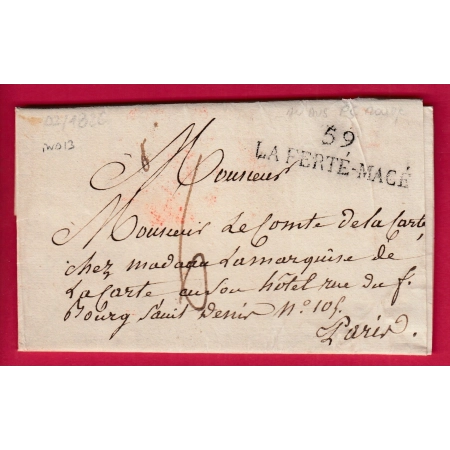 02/1826
IWD13
59
LA FERTÉ-MACÉ
Monsieur
Monsieur Le Comte de la Carte
chez madame Lamarquise de
La Carte en son hôtel rue du f.
Bourg Saint Denis N.° 105.
Paris.